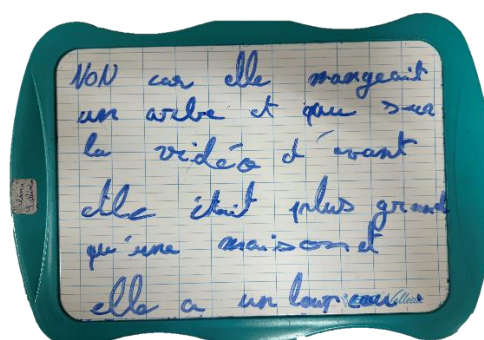 NON car elle mangeait
un arbre et que sur
la vidéo d'avant
elle était plus grand
qu'une maison et
elle a un long cou
Velleda